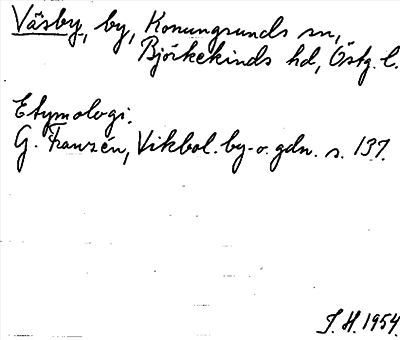 Väsby, by, Konungsunds sn,
Björkekinds hd, Östg. l.
Etymologi.
G. Franzén, Vikbol. by- o. gdn. s. 137.
J. H. 1954.